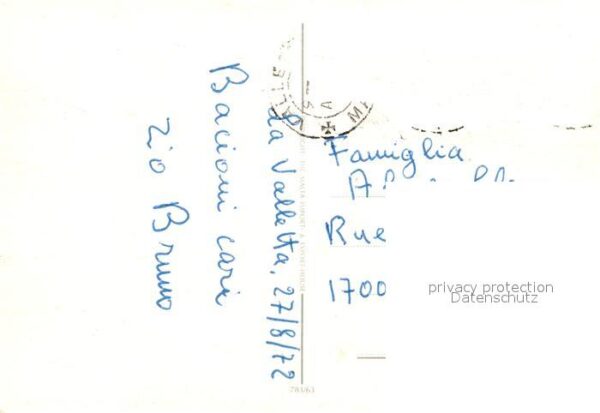 La Valletta, 27/8/72
Bacioni cari
Zio Bruno
VALLE
MA
Famiglia
Rue
1700
privacy protection
Datenschutz